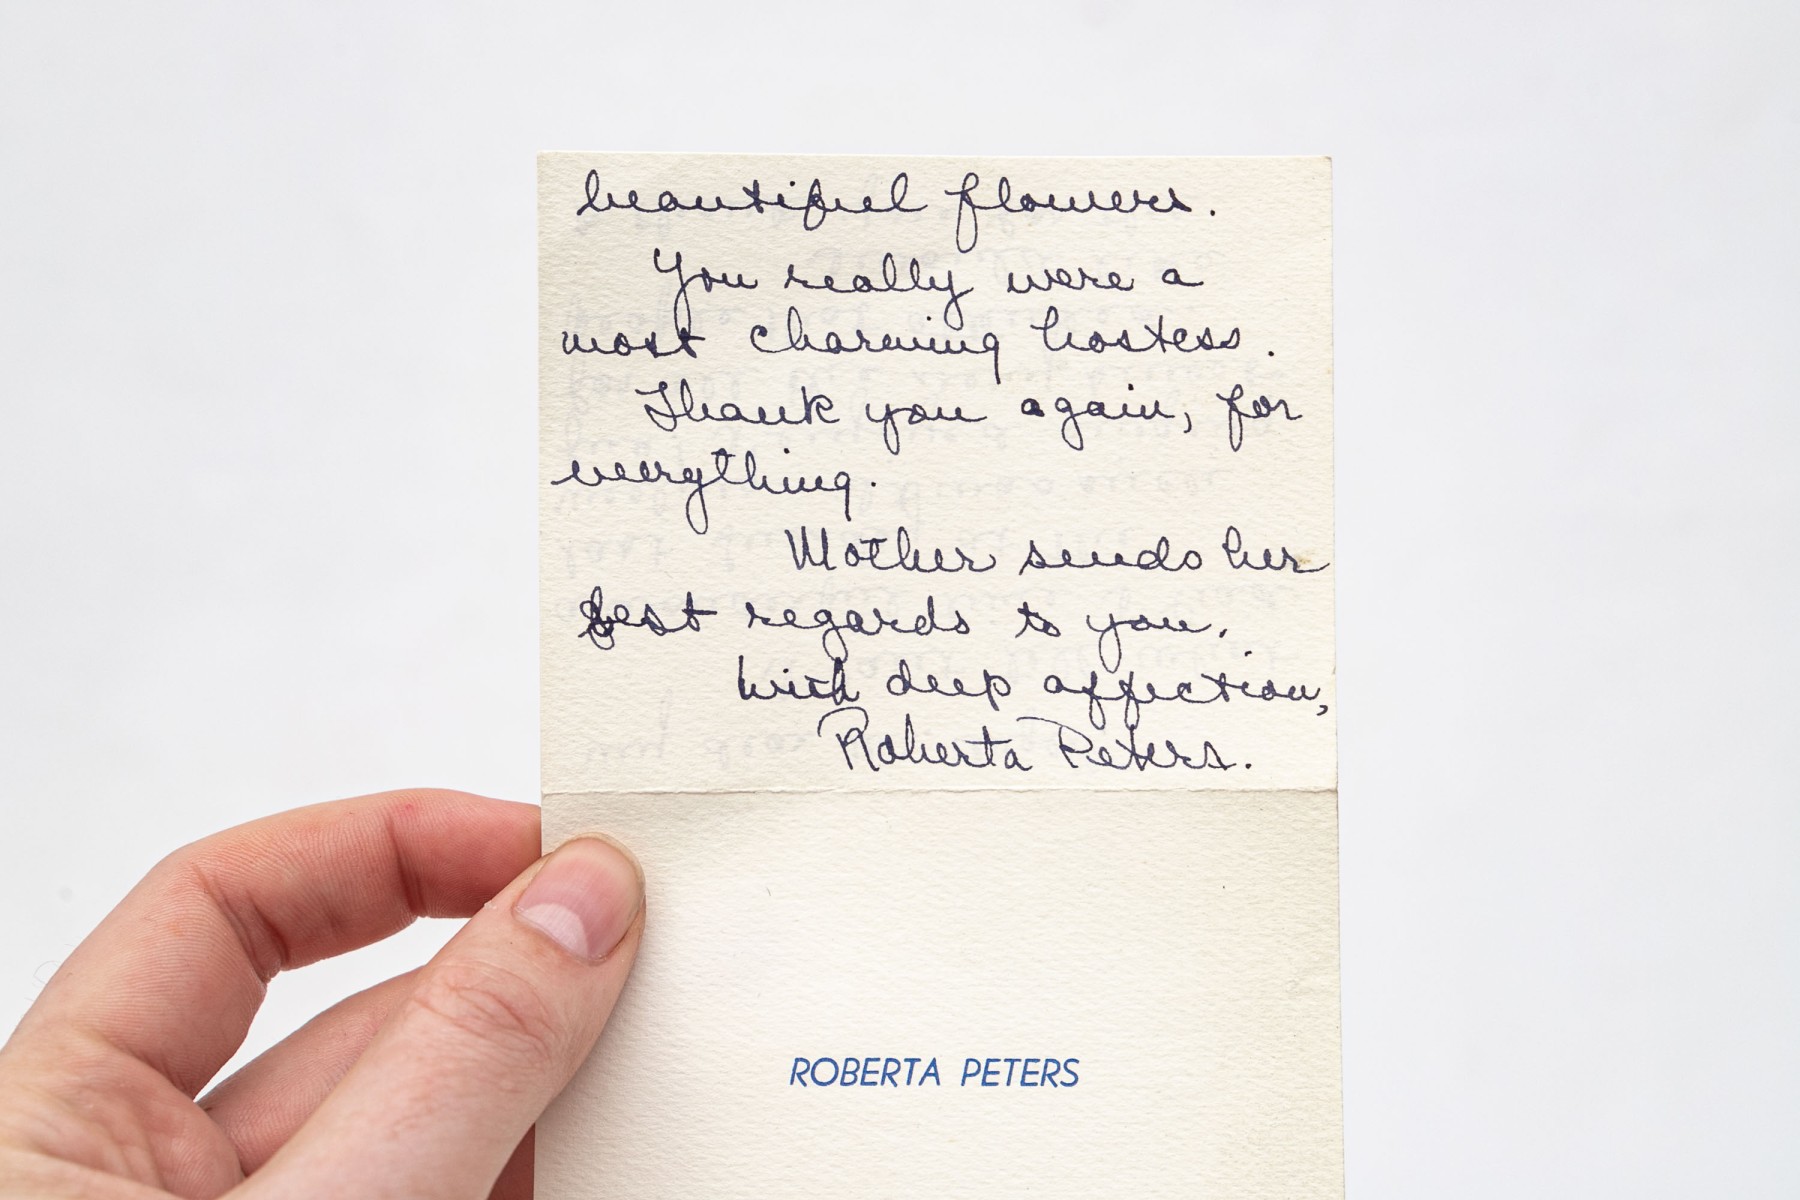 beautiful flowers.
You really were a
most charming hostess.
Thank you again, for
everything.
Mother sends her
best regards to you.
With deep affection,
Roberta Peters.
ROBERTA PETERS